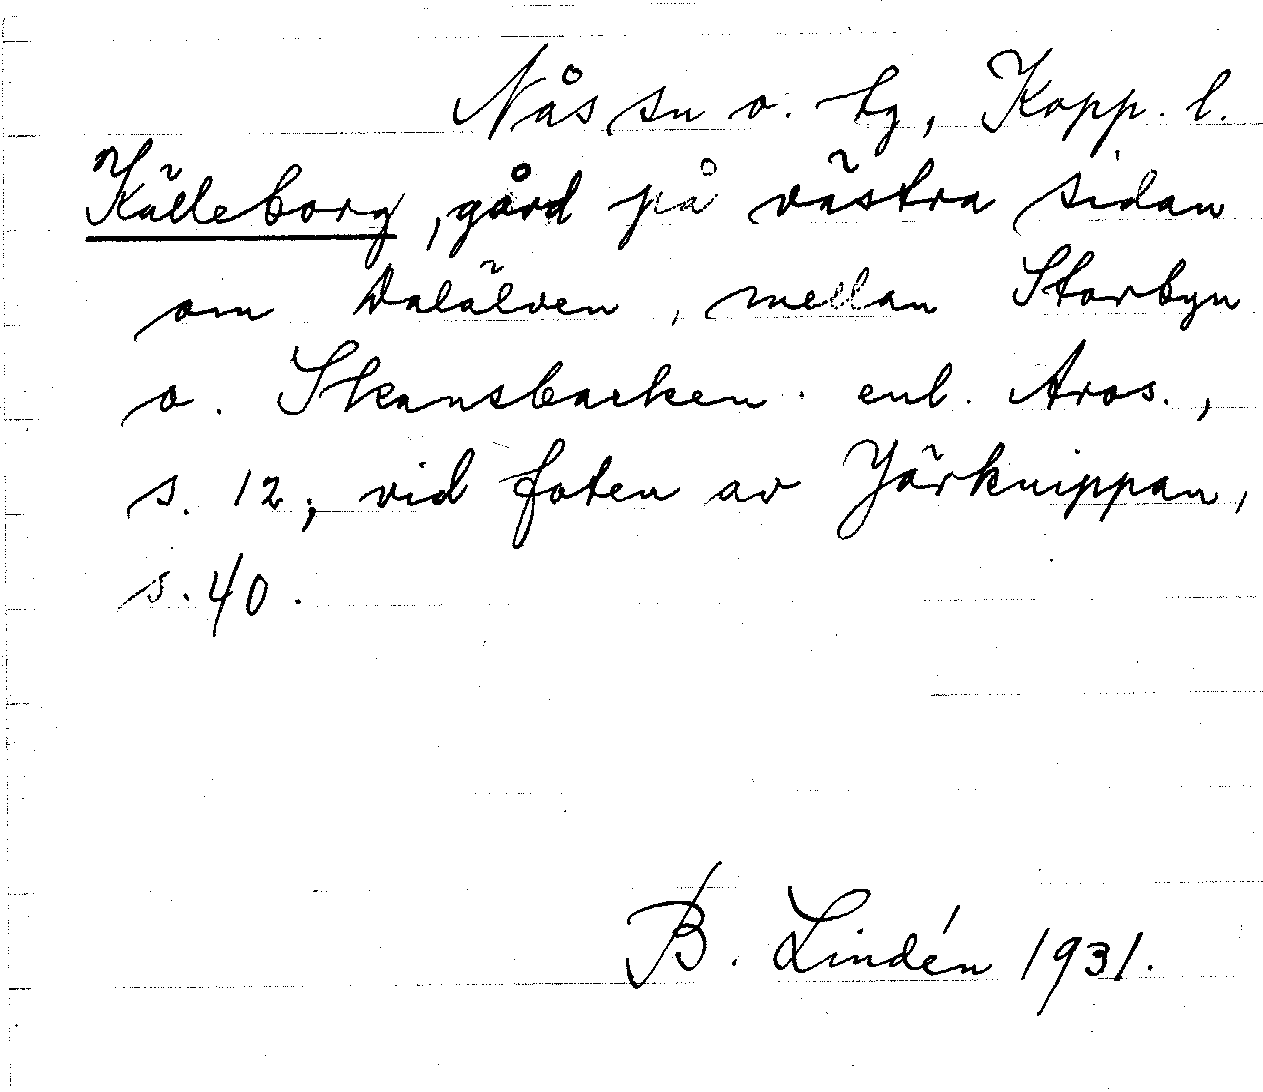 Nås sn o. tg, Kopp. l.
Källeborg, gård på västra sidan
om Dalälven, mellan Storbyn
o. Skansbacken. enl. Aros.,
s. 12; vid foten av Järknippan,
s. 40.
B. Lindén 1931.